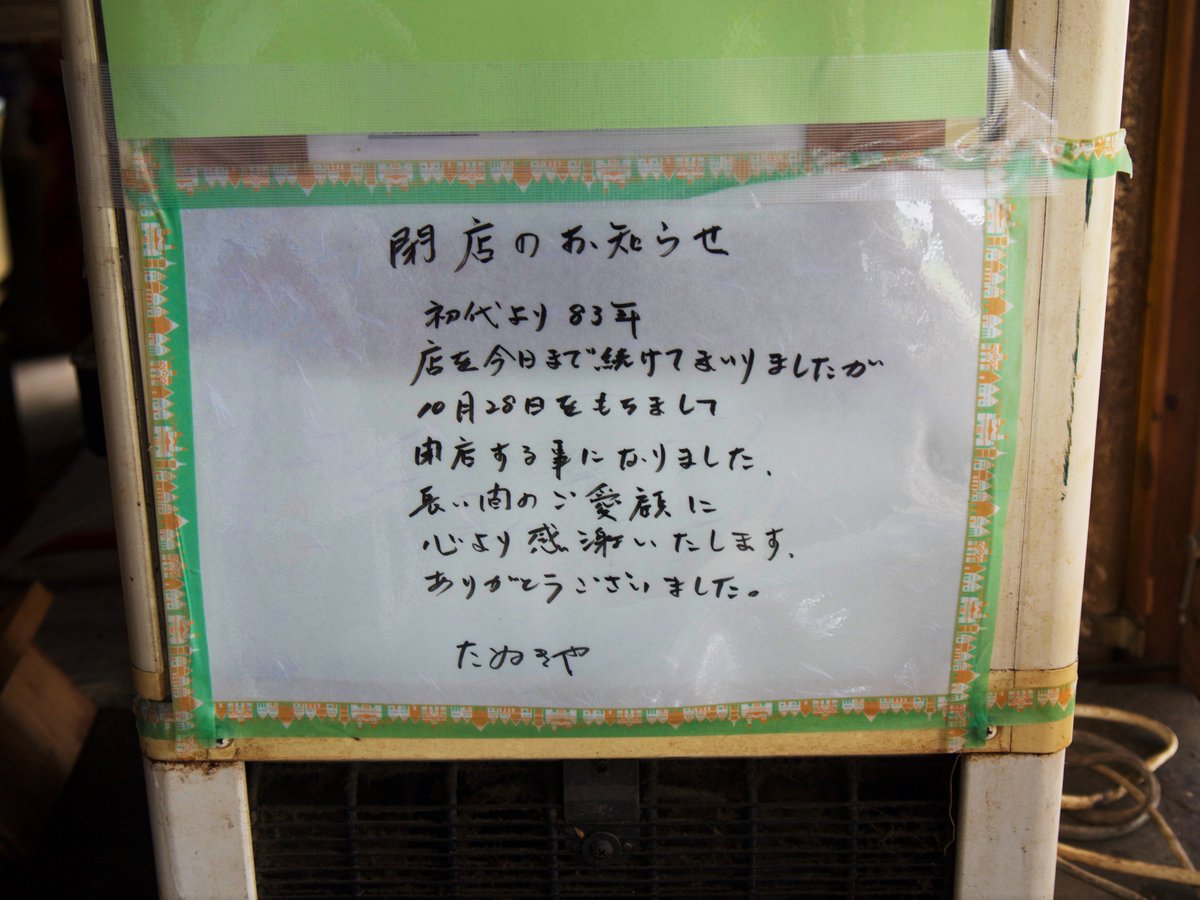 閉店のお知らせ
初代より83年
店を今日まで続けてまいりましたが
10月28日をもちまして
閉店する事になりました、
長い間のご愛顧に
心より感謝いたします、
ありがとうございました。
たぬきや